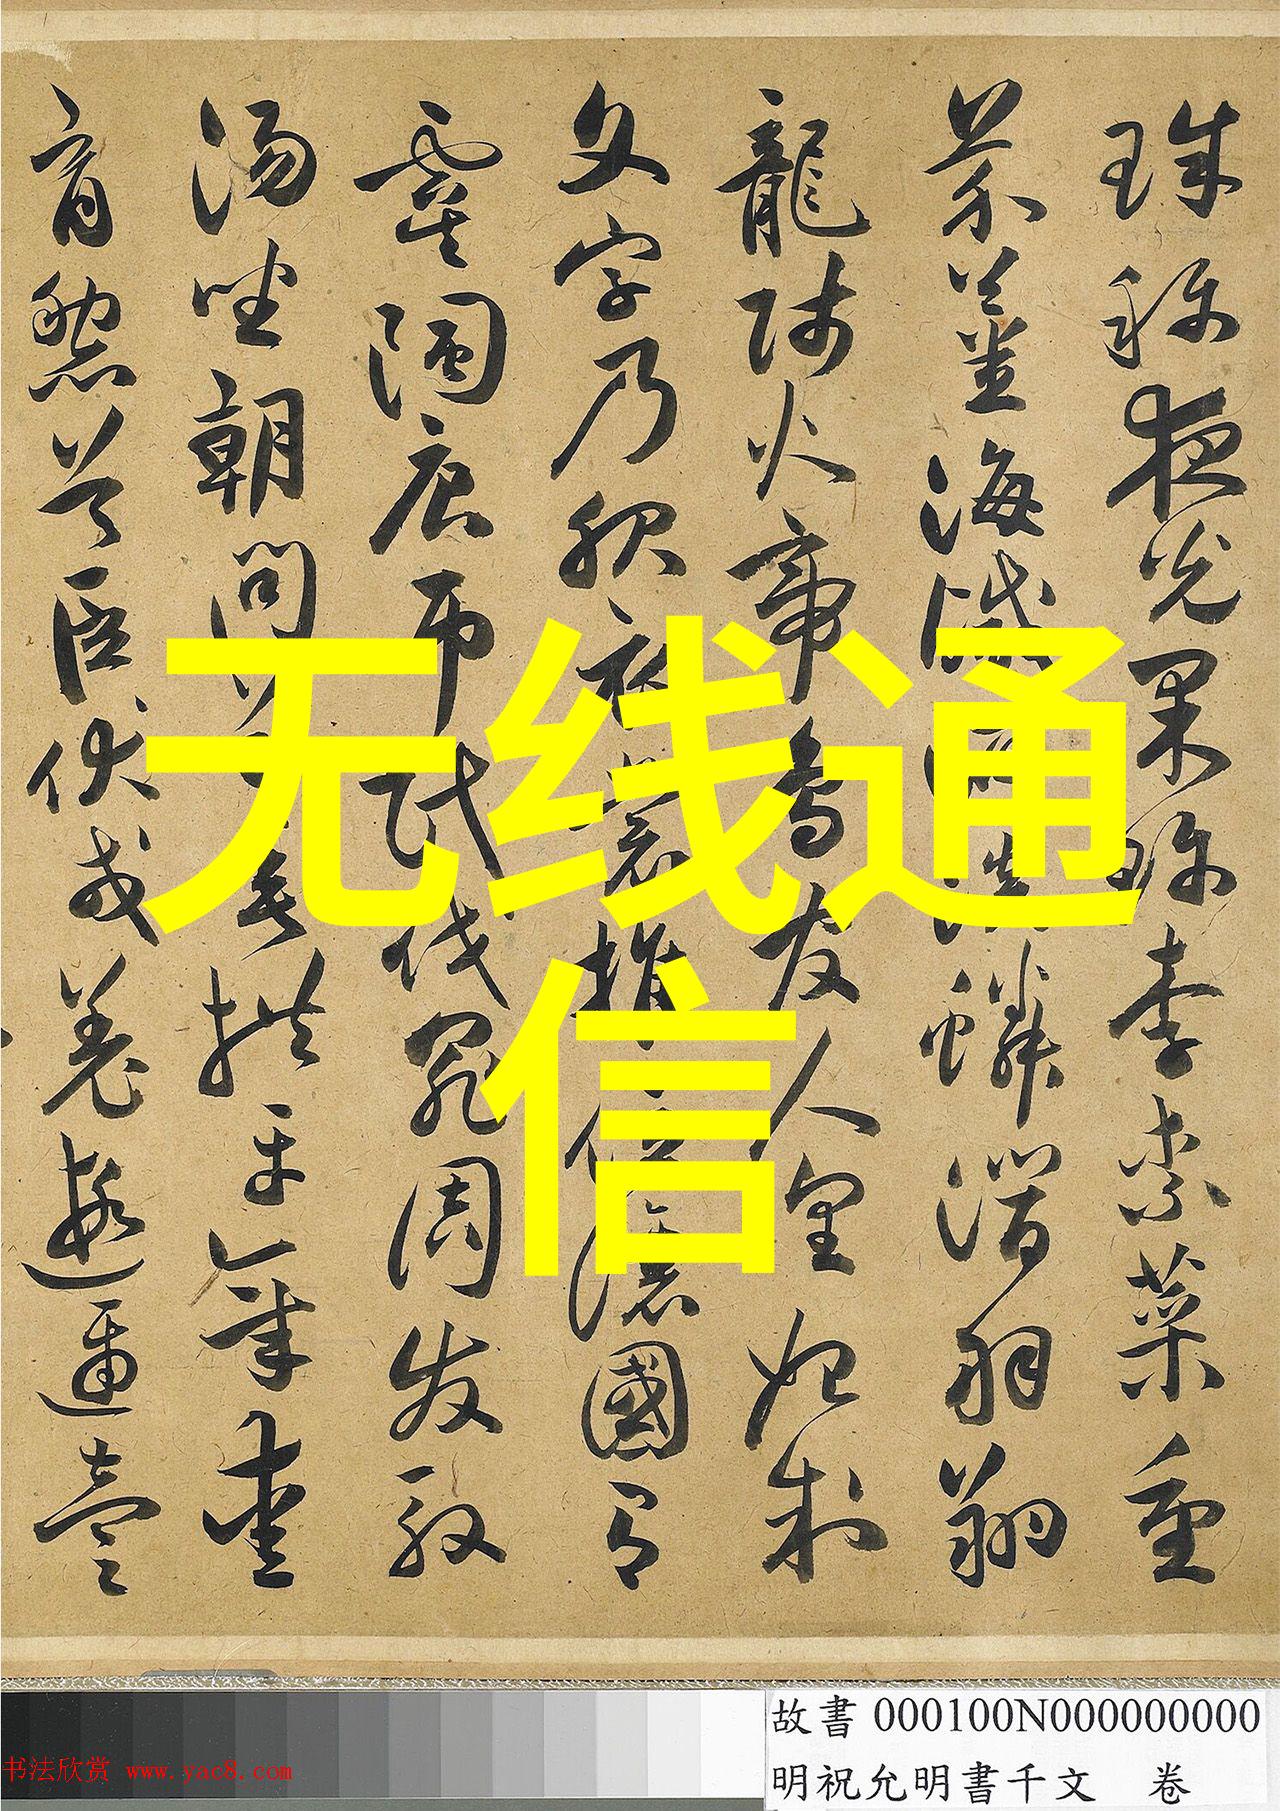 珠稱夜光果珍李柰菜重
芥薑海鹹河淡鱗潛羽翔
龍師火帝鳥官人皇始制
文字乃服衣裳推位讓國有
虞陶唐弔民伐罪周發殷
湯坐朝問道垂拱平章愛
育黎首臣伏戎羌遐邇壹
无线通
信
故書 000100N000000000
明祝允明書千文 卷
书法欣赏 www.yac8.com